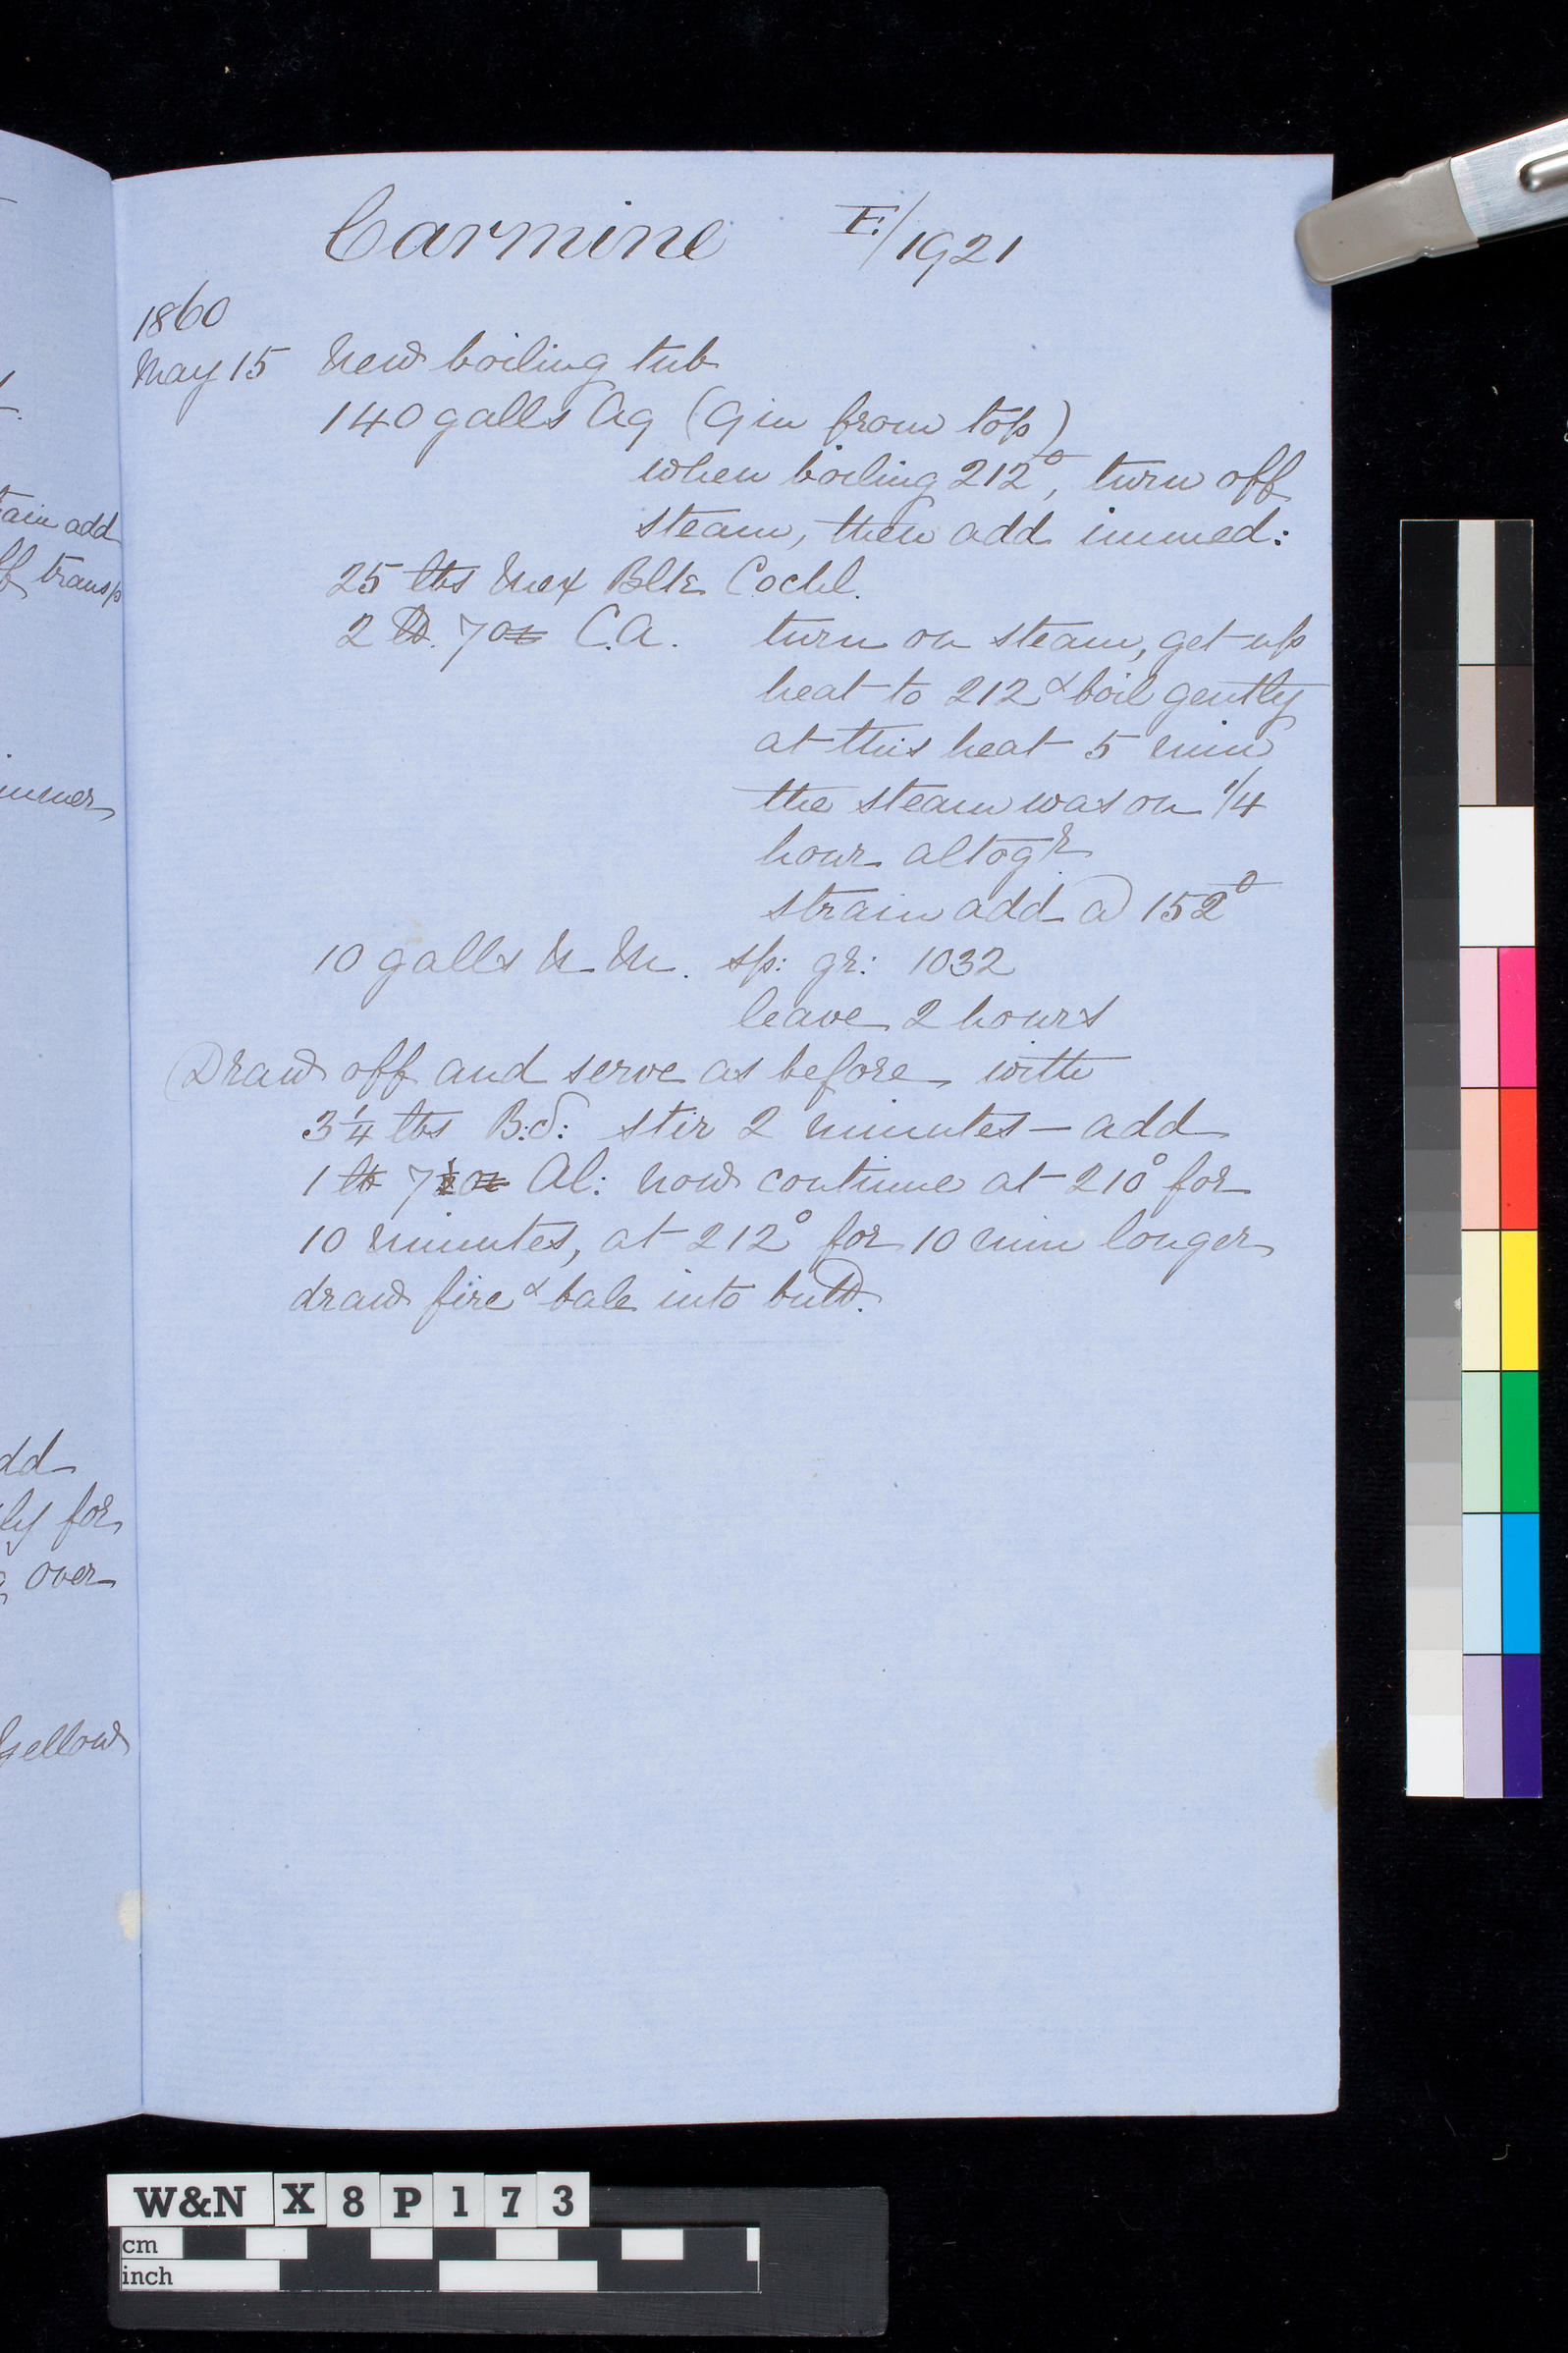 Carmine F:/1921
1860
May 15 New boiling tub
140 galls Aq (9 in from top)
when boiling 212°, turn off
steam, then add immed:
25 lbs Mex Blk Cochl.
2 lb. 7 oz C.A. turn on steam, get up
heat to 212 & boil gently
at this heat 5 min
the steam was on 1/4
hour altogr
strain add @ 152°
10 galls N. M. sp: gr: 1032
leave 2 hours
Draw off and serve as before with
3 1/4 lbs B:S: stir 2 minutes – add
1 lb 7 1/2 oz Al: now continue at 210° for
10 minutes, at 212° for 10 min longer
draw fire & bale into butt.
ain add
ff transp
immer
dd
ly for
over
Yellow
W&N X8P173
cm
inch